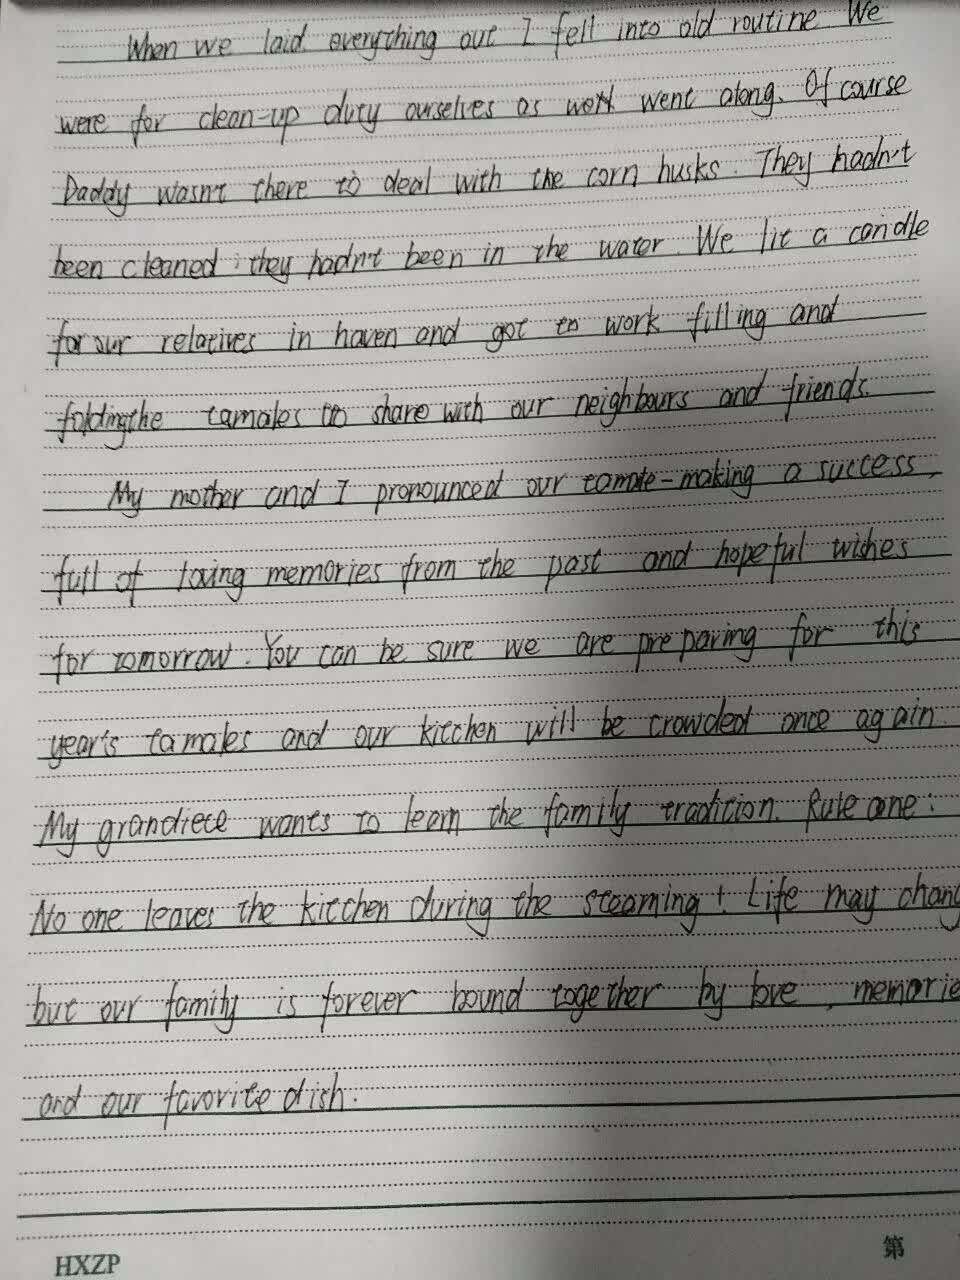 When we laid everything out I fell into old routine We
were for clean-up duty ourselves as work went along. Of course
Daddy wasn't there to deal with the corn husks. They hadn't
been cleaned, they hadn't been in the water. We lit a candle
for our relatives in haven and got to work filling and
foldingthe tamales to share with our neighbours and friends.
My mother and I pronounced our tamale-making a success,
full of loving memories from the past and hopeful wishes
for tomorrow. You can be sure we are preparing for this
year's tamales and our kitchen will be crowded once again
My grandiece wants to learn the family tradition. Rule one:
No one leaves the kitchen during the steaming! Life may chang
but our family is forever bound together by love, memorie
and our favorite dish.
HXZP
第